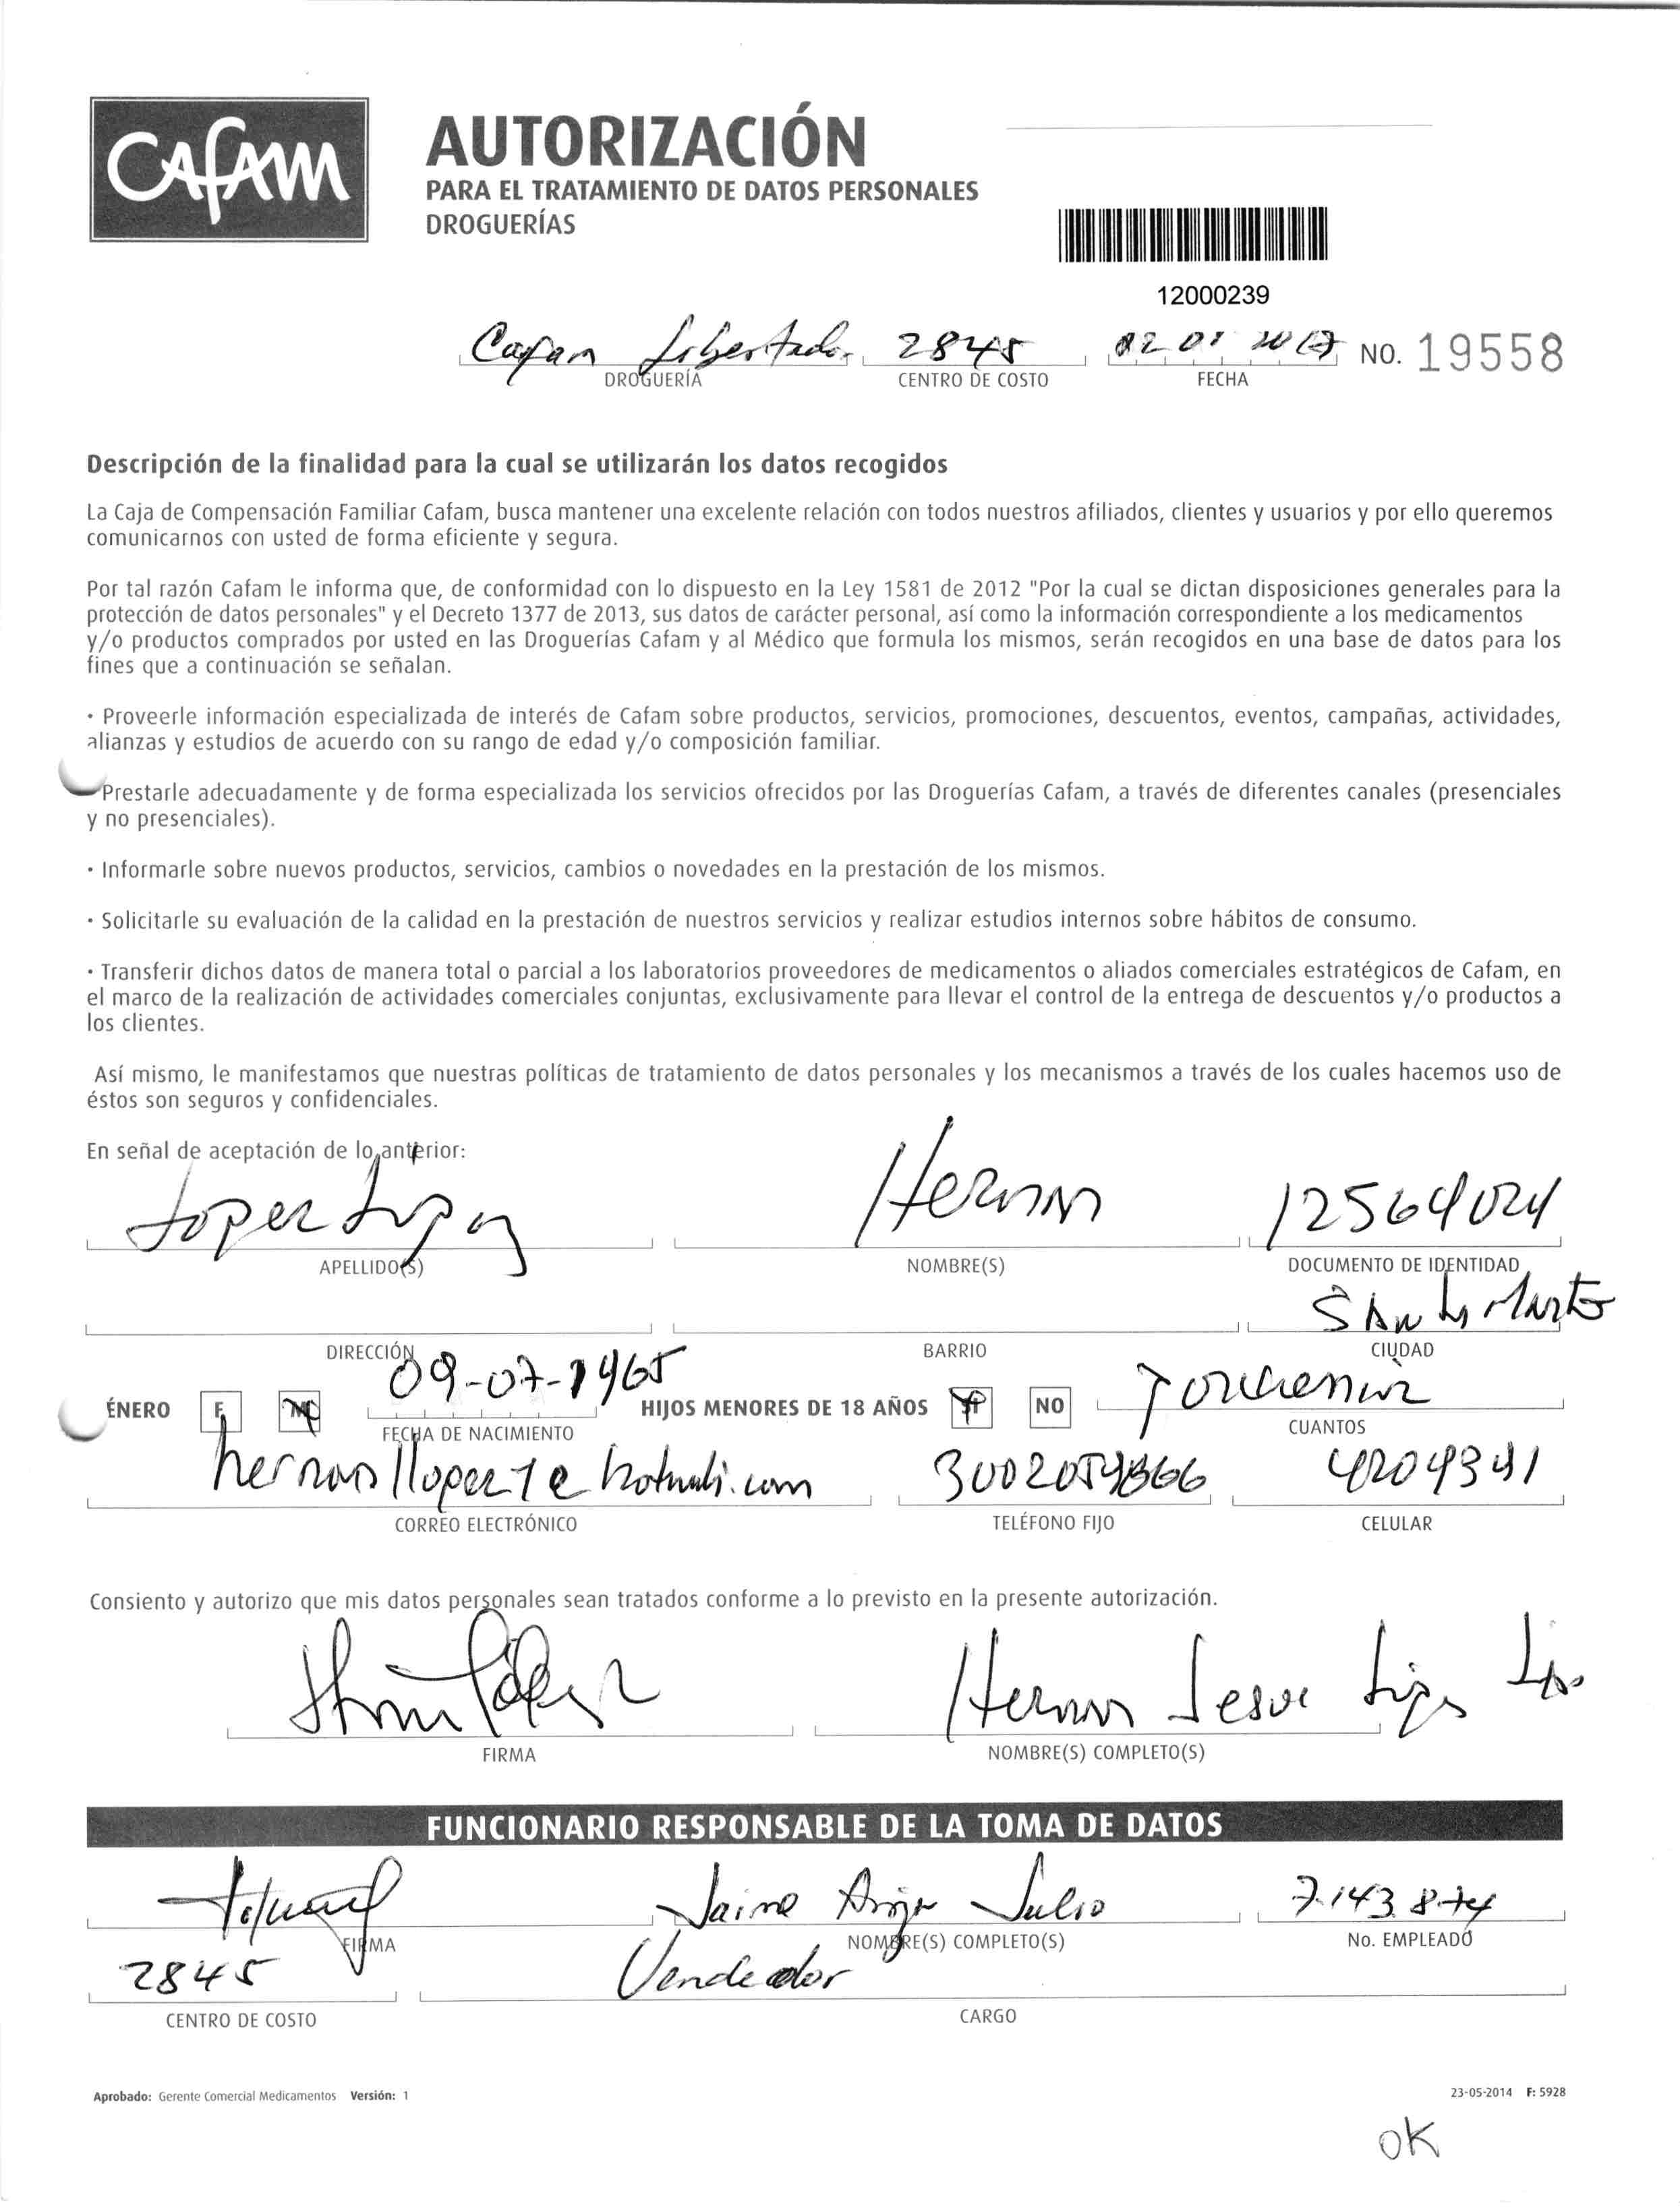 CAFAM
AUTORIZACIÓN
PARA EL TRATAMIENTO DE DATOS PERSONALES
DROGUERÍAS
12000239
Cafam Libertador 2845 02 01 2017 NO. 19558
DROGUERÍA CENTRO DE COSTO FECHA
Descripción de la finalidad para la cual se utilizarán los datos recogidos
La Caja de Compensación Familiar Cafam, busca mantener una excelente relación con todos nuestros afiliados, clientes y usuarios y por ello queremos
comunicarnos con usted de forma eficiente y segura.
Por tal razón Cafam le informa que, de conformidad con lo dispuesto en la Ley 1581 de 2012 "Por la cual se dictan disposiciones generales para la
protección de datos personales" y el Decreto 1377 de 2013, sus datos de carácter personal, así como la información correspondiente a los medicamentos
y/o productos comprados por usted en las Droguerías Cafam y al Médico que formula los mismos, serán recogidos en una base de datos para los
fines que a continuación se señalan.
· Proveerle información especializada de interés de Cafam sobre productos, servicios, promociones, descuentos, eventos, campañas, actividades,
alianzas y estudios de acuerdo con su rango de edad y/o composición familiar.
Prestarle adecuadamente y de forma especializada los servicios ofrecidos por las Droguerías Cafam, a través de diferentes canales (presenciales
y no presenciales).
· Informarle sobre nuevos productos, servicios, cambios o novedades en la prestación de los mismos.
· Solicitarle su evaluación de la calidad en la prestación de nuestros servicios y realizar estudios internos sobre hábitos de consumo.
· Transferir dichos datos de manera total o parcial a los laboratorios proveedores de medicamentos o aliados comerciales estratégicos de Cafam, en
el marco de la realización de actividades comerciales conjuntas, exclusivamente para llevar el control de la entrega de descuentos y/o productos a
los clientes.
Así mismo, le manifestamos que nuestras políticas de tratamiento de datos personales y los mecanismos a través de los cuales hacemos uso de
éstos son seguros y confidenciales.
En señal de aceptación de lo anterior:
Lopez Lopez Hernan 12564024
APELLIDO(S) NOMBRE(S) DOCUMENTO DE IDENTIDAD
Santa Marta
DIRECCIÓN BARRIO CIUDAD
09-07-1965
ÉNERO F M HIJOS MENORES DE 18 AÑOS SI NO
FECHA DE NACIMIENTO CUANTOS
4209341
CORREO ELECTRÓNICO TELÉFONO FIJO CELULAR
Consiento y autorizo que mis datos personales sean tratados conforme a lo previsto en la presente autorización.
Hernan Jesus Lopez Lopez
FIRMA NOMBRE(S) COMPLETO(S)
FUNCIONARIO RESPONSABLE DE LA TOMA DE DATOS
Jaime Julio 7.143.874
FIRMA NOMBRE(S) COMPLETO(S) No. EMPLEADO
2845 Vendedor
CENTRO DE COSTO CARGO
Aprobado: Gerente Comercial Medicamentos Versión: 1 23-05-2014 F: 5928
OK